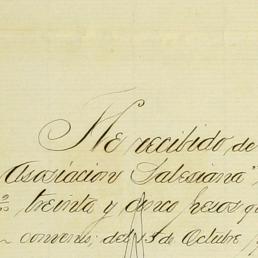 He recibido de
Asociacion Salesiana"
treinta y cinco pesos
convenio; del 15 de Octubre